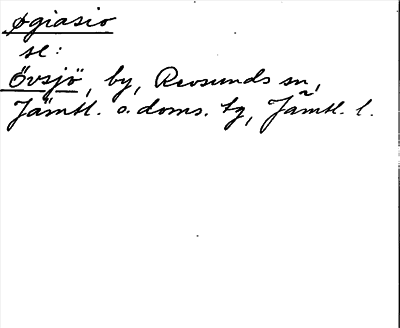 øgiasio
se:
Övsjö, by, Revsunds sn,
Jämtl. o. doms. tg, Jämtl. l.